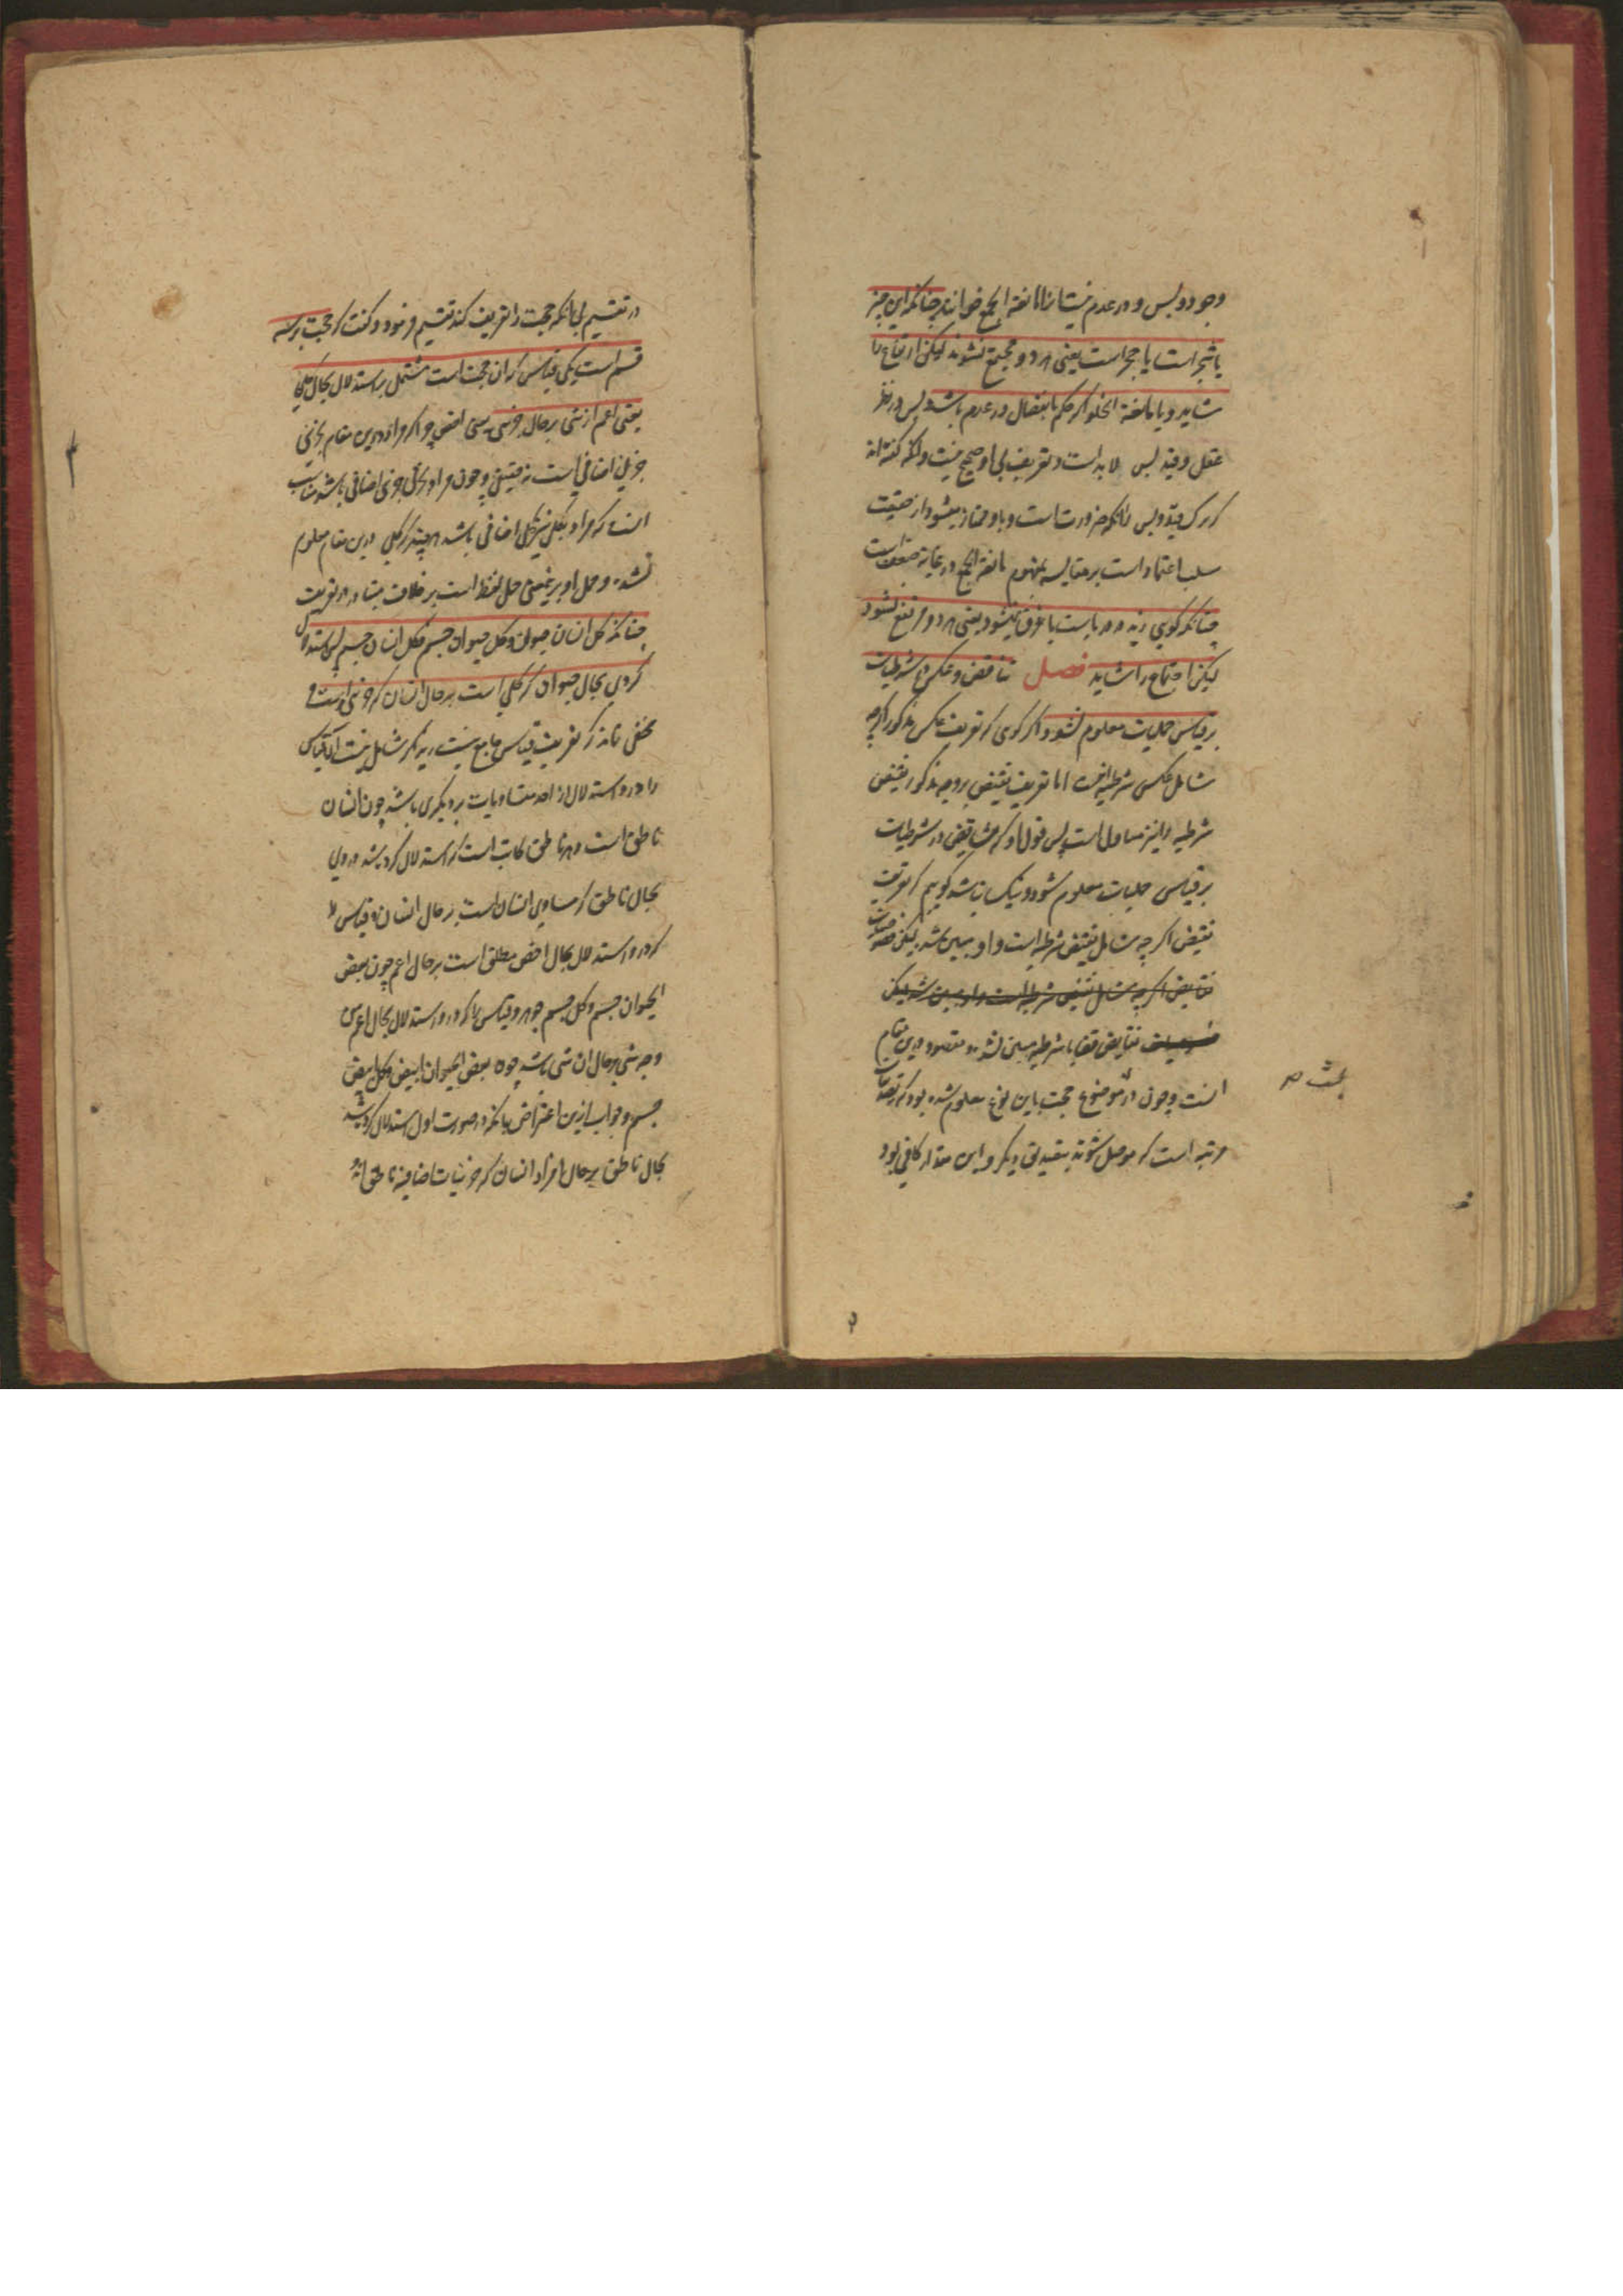 وجود و بس و در عدم نیست انرا مانعة الجمع خوانند چنانکه این چیز
یا شجر است یا حجر است یعنی هر دو مجتمع نشوند لیکن ارتفاع را
شاید و یا مانعة الخلو اگر حکم بانفصال در عدم باشد و بس در نظر
عقل و قید بس لابد است و تعریف بی او صحیح نیست و انکه گفته اند
که ترک قید و بس بضرورت است و با و ممتاز میشود از حقیقت
سلب اعتماد است بر مقایسه بمفهوم مانعة الجمع در غایة ضعف است
چنانکه گویی زید در دریاست یا غرق نمیشود یعنی هر دو مرتفع نشود
لیکن اجتماع را شاید فصل تناقض و عکس در شرطیات
بر قیاس حملیات معلوم شود و اگر گوی که تعریف عکس مذکور اگرچه
شامل عکس شرطیه است اما تعریف نقیض بر وجه مذکور نقیض
شرطیه را نیز شامل است پس قول او که تناقض در شرطیات
بر قیاس حملیات معلوم شود و نیک نباشد گویم که تعریف
نقیض اگر چه شامل نقیض شرطیه است و او مبین شد لیکن خصوصیات
نقایض اگر چه شامل نقیض شرطیه است و او مبین شد لیکن
خصوصیات نقایض قضایا شرطیه مبین نشد و مقصود درین مقام
بحث ص
انست و چون در موضوع حجت باین نوع معلوم شده بود که تصدیقات
مرتبه است که موصل شوند بتصدیق دیگر و این مقدار کافی بود
در تقسیم بی انکه حجت را تعریف کند تقسیم فرمود و گفت که حجت بر سه
قسم است یکی قیاس که ان حجت است مشتمل بر استدلال بحال کلی
یعنی اعم از شی بر حال جزئی یعنی اخص چه اگر مراد درین مقام بجزئی
جزئی اضافی است نه حقیقی و چون مراد بجزئی جزئی اضافی باشد مناسب
انست که مراد بکلی نیز کلی اضافی باشد هر چند که کلی درین مقام معلوم
نشده و حمل او بر این معنی حمل لفظ است بر خلاف متبادر در تعریف
چنانکه کل انسان حیوان و کل حیوان جسم فکل انسان جسم پس استدلال
کردی بحال حیوان که کلی است بر حال انسان که جزئی اوست و
مخفی نماند که تعریف قیاس جامع نیست زیرا که شامل نیست ان قیاس
را که در و استدلال از احد متساویات بر دیگری باشد چون انسان
ناطق است و هر ناطق کاتب است که استدلال کرده شد در وی
بحال ناطق که مساوی انسان است بر حال انسان و قیاس را
که در و استدلال بحال اخص مطلق است بر حال اعم چون بعض
الحیوان جسم و کل جسم جوهر و قیاس را که در و استدلال بحال اعم من
وجه شی بر حال ان شی باشد چون بعض الحیوان ابیض و کل ابیض
جسم و جواب ازین اعتراض بانکه در صورت اول استدلال کرده شد
بحال ناطق بر حال افراد انسان که جزئیات اضافیه ناطق اند